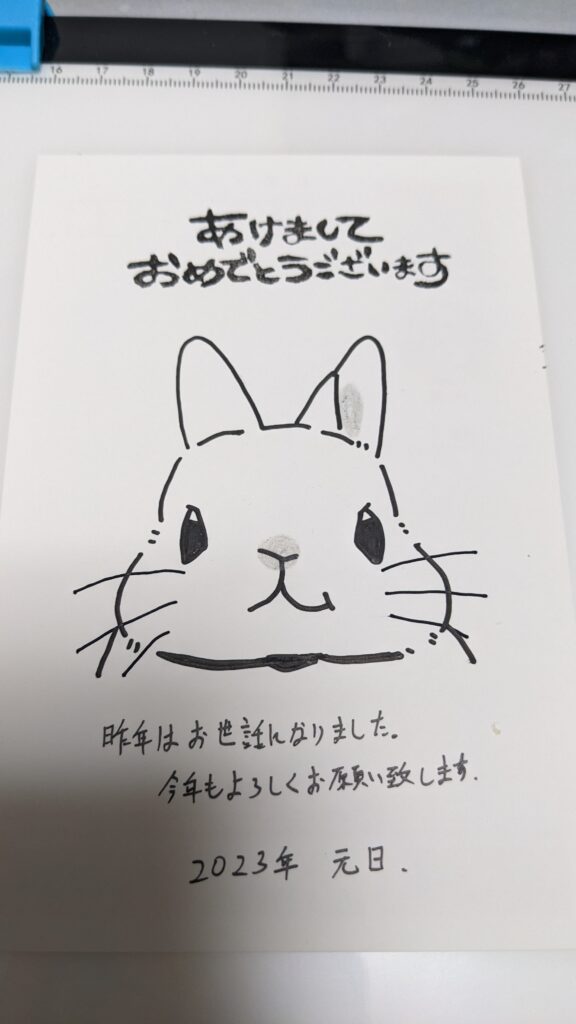 15 16 17 18 19 20 21 22 23 24 25 26 27
あけまして
おめでとうございます
昨年はお世話になりました。
今年もよろしくお願い致します.
2023年 元日.